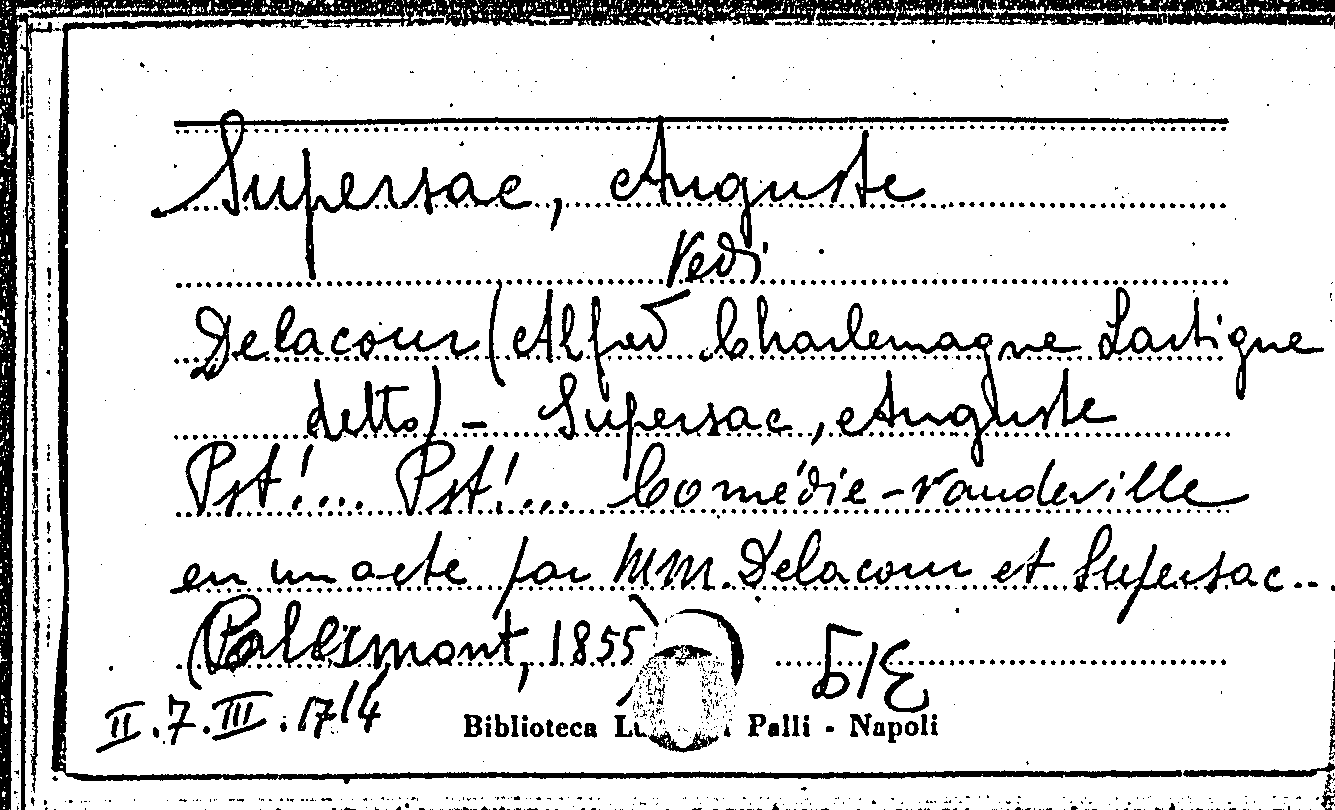 Supersac, Auguste
Vedi
Delacour (Alfred Charlemagne Lartigue
detto) - Supersac, Auguste
Pst!... Pst!... Comédie-vaudeville
en un acte par MM. Delacour et Supersac...
1855)
II.7.III.17/4
Biblioteca Palli - Napoli